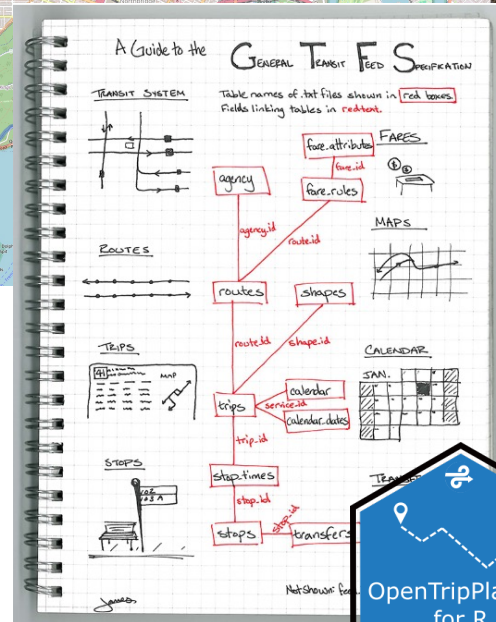 A Guide to the GENERAL TRANSIT FEED SPECIFICATION
TRANSIT SYSTEM
Table names of .txt files shown in red boxes.
Fields linking tables in red text.
FARES
fare_attributes
fare_id
agency
fare_rules
agency_id
route_id
MAPS
ROUTES
routes
shapes
route_id
shape_id
TRIPS
MAP
CALENDAR
JAN.
trips
calendar
service_id
calendar_dates
trip_id
STOPS
stop_times
stop_id
stops
stop_id
transfers
Not shown:
James
OpenTripPla
for R